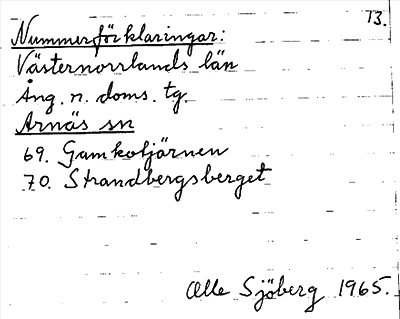 13.
Nummerförklaringar:
Västernorrlands län
Ång. n. doms. tg.
Arnäs sn
69. Gamkotjärnen
70. Strandbergsberget
Olle Sjöberg 1965.